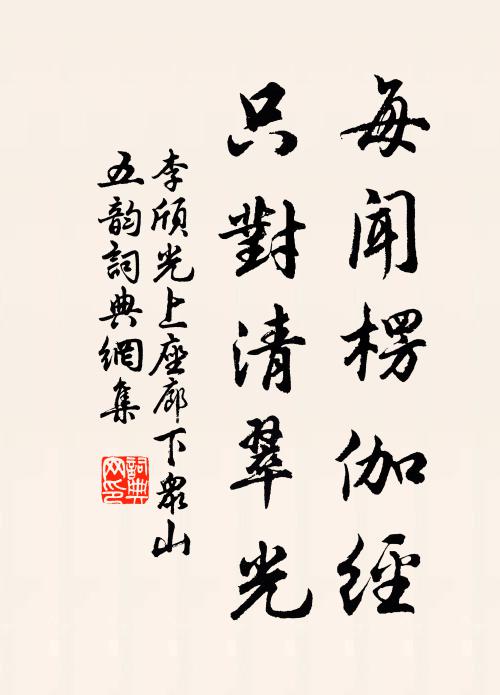 每聞楞伽經
只對清翠光
李頎光上座廊下衆山
五韵詞典網集
詞典
网印